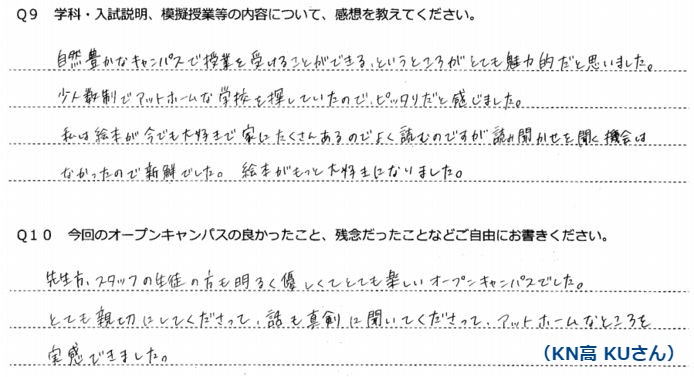 Q9 学科・入試説明、模擬授業等の内容について、感想を教えてください。
自然豊かなキャンパスで授業を受けることができる、というところがとても魅力的だと思いました。
少人数制でアットホームな学校を探していたので、ピッタリだと感じました。
私は絵本が今でも大好きで家にたくさんあるのでよく読むのですが読み聞かせを聞く機会は
なかったので新鮮でした。 絵本がもっと大好きになりました。
Q10 今回のオープンキャンパスの良かったこと、残念だったことなどご自由にお書きください。
先生方、スタッフの生徒の方も明るく優しくてとても楽しいオープンキャンパスでした。
とても親切にしてくださって、話も真剣に聞いてくださって、アットホームなところを
実感できました。
（KN高 KUさん）